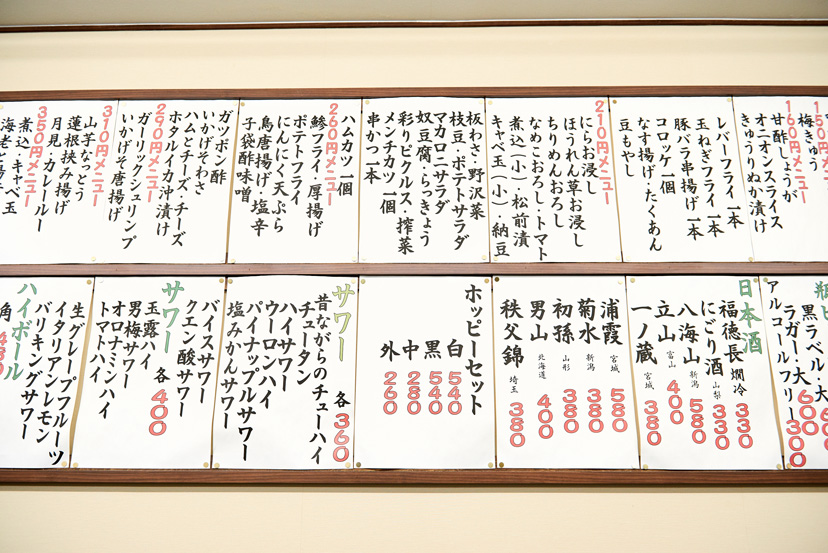 150円メニュー
梅きゅう
160円メニュー
甘酢しょうが
オニオンスライス
きゅうりぬか漬け
レバーフライ 一本
玉ねぎフライ 一本
豚バラ串揚げ 一本
コロッケ 一個
なす揚げ・たくあん
豆もやし
210円メニュー
にらお浸し
ほうれん草お浸し
ちりめんおろし
なめこおろし・トマト
煮込(小)・松前漬
キャベ玉(小)・納豆
板わさ・野沢菜
枝豆・ポテトサラダ
マカロニサラダ
奴豆腐・らっきょう
彩りピクルス・搾菜
メンチカツ 一個
串かつ 一本
ハムカツ 一個
260円メニュー
鯵フライ・厚揚げ
ポテトフライ
にんにく天ぷら
鳥唐揚げ・塩辛
子袋酢味噌
ガツポン酢
いかげそわさ
ハムとチーズ・チーズ
ホタルイカ沖漬け
290円メニュー
ガーリックシュリンプ
いかげそ唐揚げ
310円メニュー
山芋なっとう
蓮根挟み揚げ
月見・カレールー
350円メニュー
煮込・キャベ玉
黒ラベル・大
ラガー・大 600
アルコールフリー 300
日本酒
福徳長 燗冷 330
にごり酒 山梨 330
八海山 新潟 580
立山 富山 400
一ノ蔵 宮城 380
浦霞 宮城 580
菊水 新潟 380
初孫 山形 380
男山 北海道 400
秩父錦 埼玉 380
ホッピーセット
白 540
黒 540
中 280
外 260
サワー 各360
昔ながらのチューハイ
チュータン
ハイサワー
ウーロンハイ
パイナップルサワー
塩みかんサワー
バイスサワー
クエン酸サワー
サワー 各400
玉露ハイ
男梅サワー
オロナミンハイ
トマトハイ
生グレープフルーツ
イタリアンレモン
バリキングサワー
ハイボール
角 480